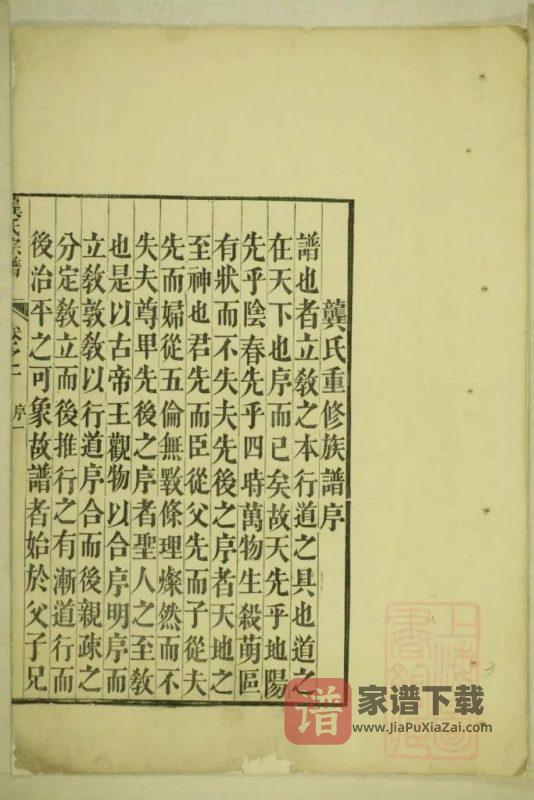 龔氏重修族譜序
譜也者立教之本行道之具也道之
在天下也序而已矣故天先乎地陽
先乎陰春先乎四時萬物生殺萌區
有狀而不失夫先後之序者天地之
至神也君先而臣從父先而子從夫
先而婦從五倫無斁條理燦然而不
失夫尊卑先後之序者聖人之至教
也是以古帝王觀物以合序明序而
立教敦教以行道序合而後親疎之
分定教立而後推行之有漸道行而
後治平之可象故譜者始於父子兄
龔氏宗譜 卷之一 序一
谱 家谱下载
www.JiaPuXiaZai.com